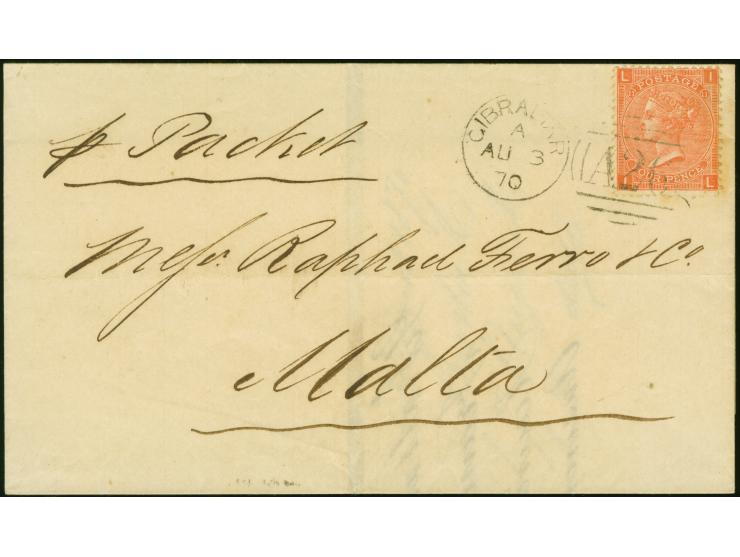 p Packet
Messrs. Raphael Ferro & Co
Malta
GIBRALTAR
A
AU 3
70
A26
L I
POSTAGE
FOUR PENCE
I L